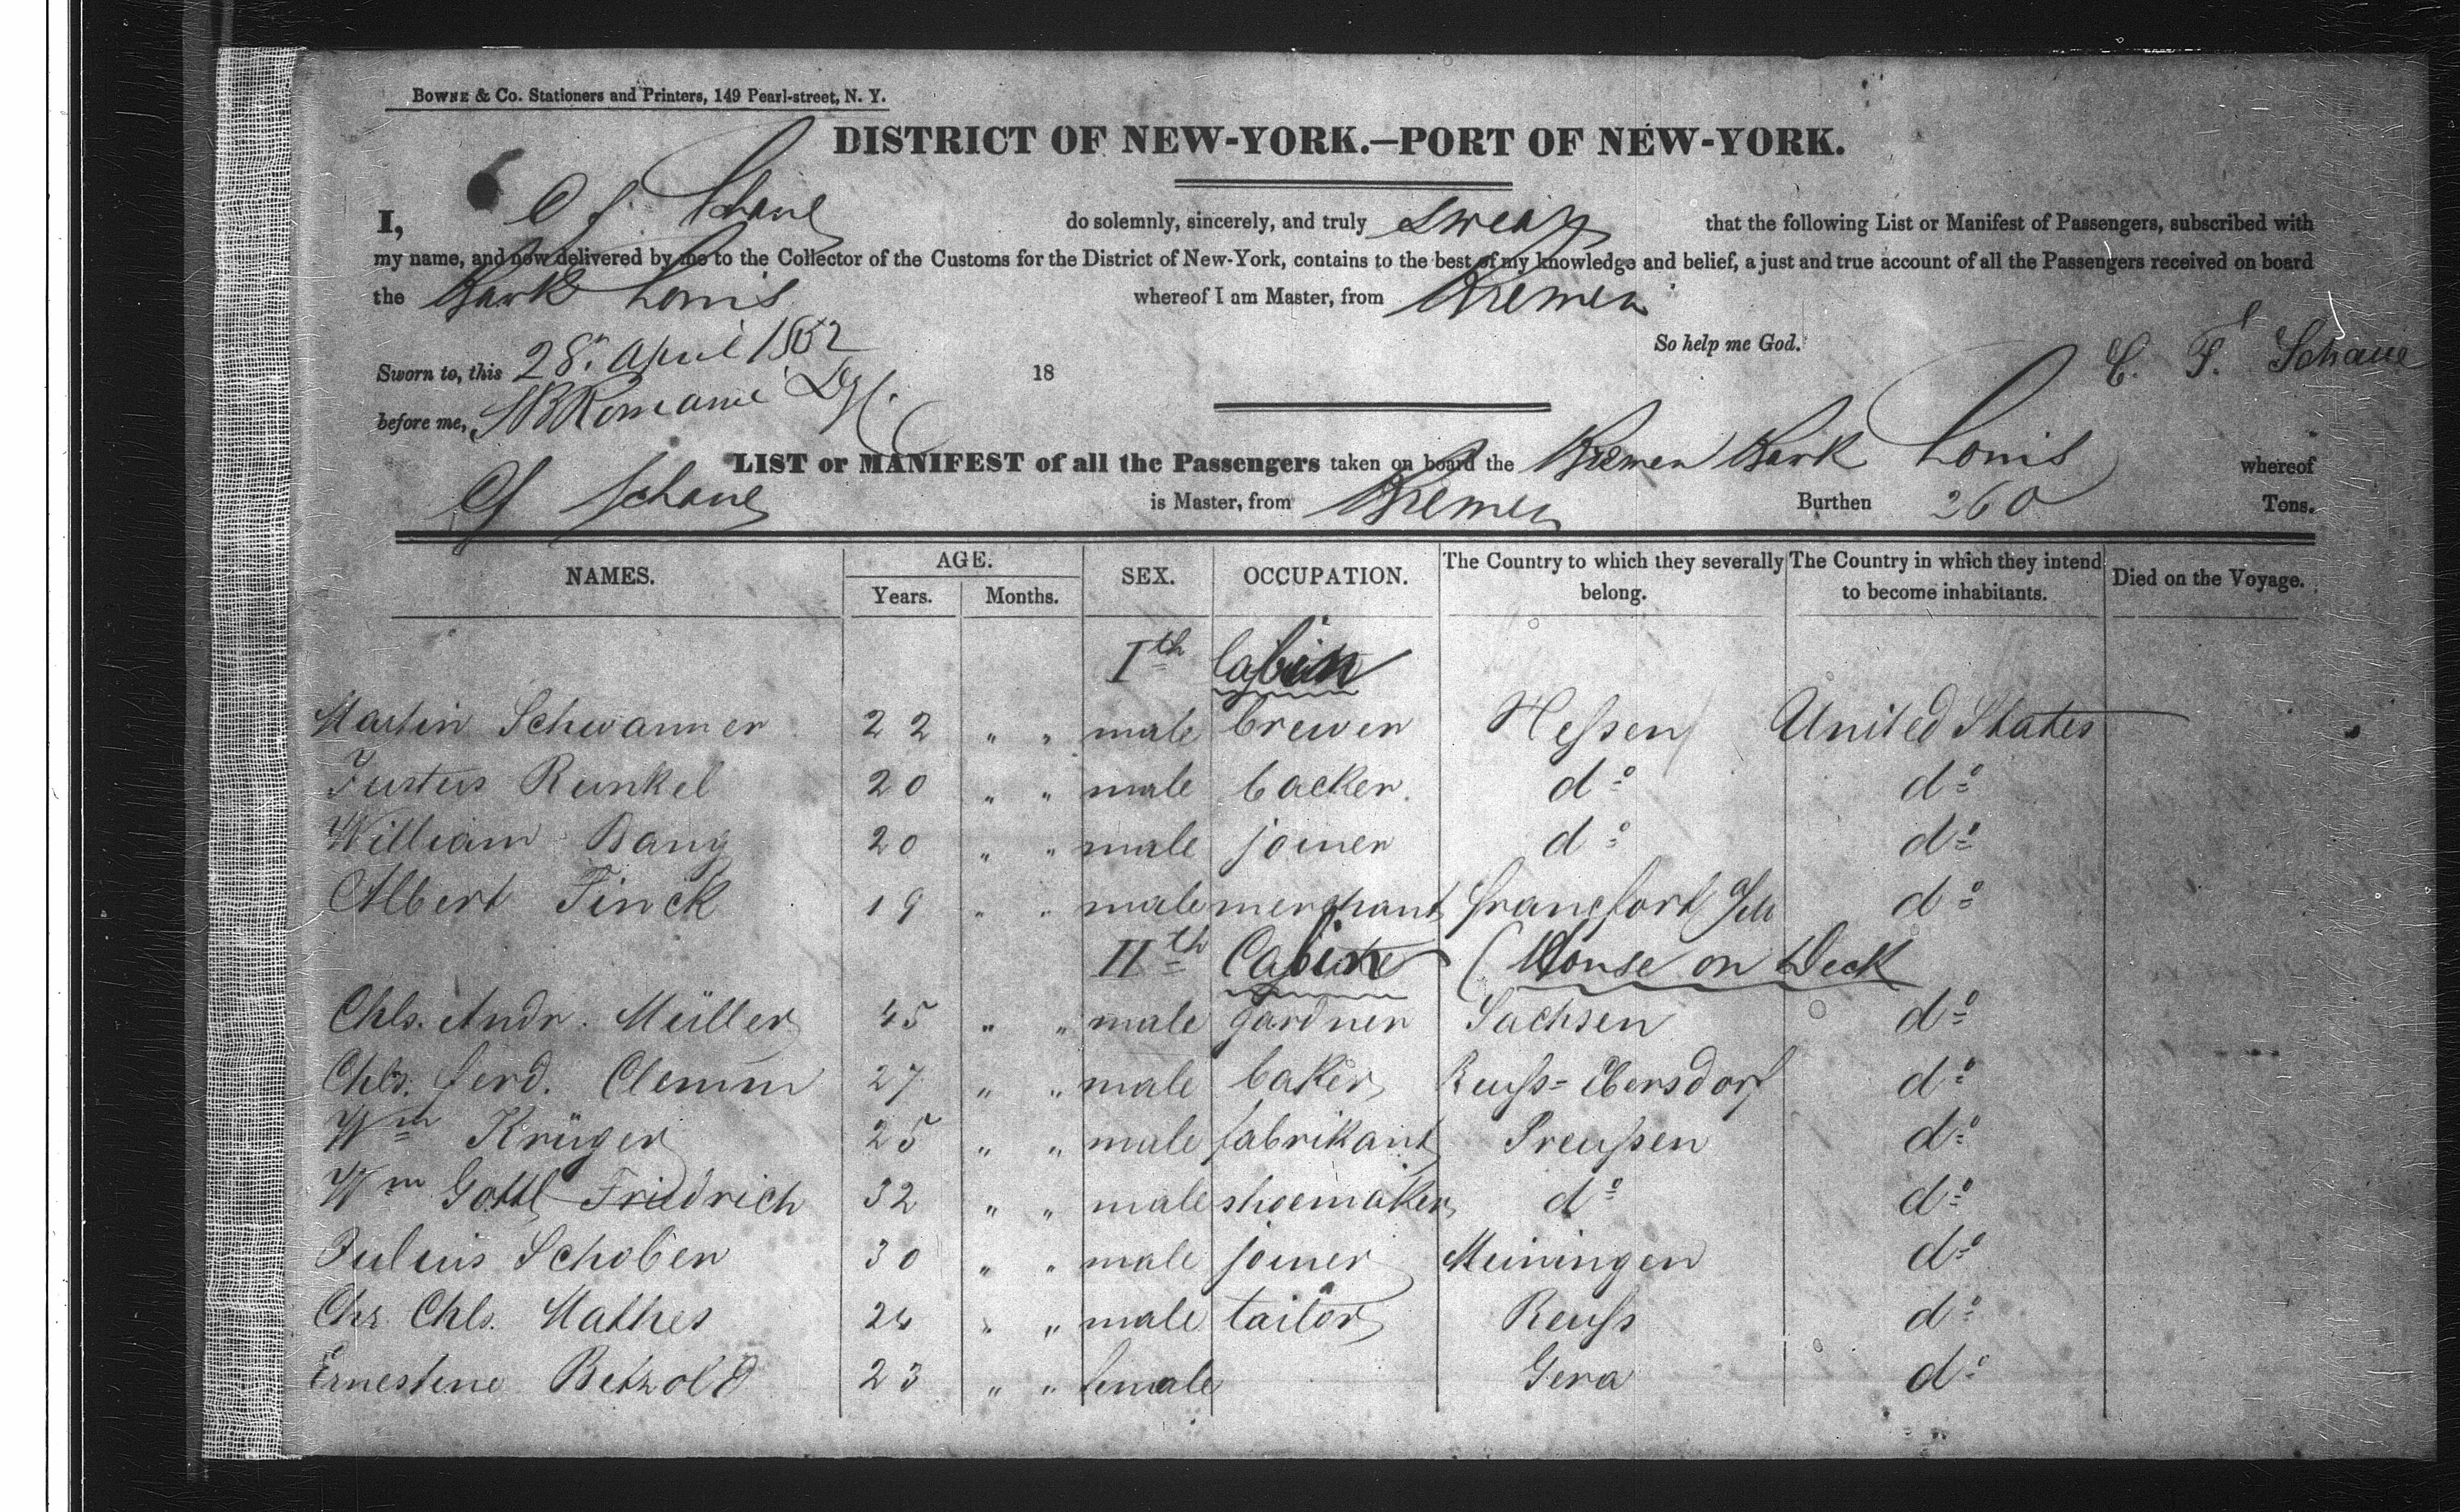 BOWNE & Co. Stationers and Printers, 149 Pearl-street, N. Y.
DISTRICT OF NEW-YORK.—PORT OF NEW-YORK.
I, C f Schaue do solemnly, sincerely, and truly swear that the following List or Manifest of Passengers, subscribed with
my name, and now delivered by me to the Collector of the Customs for the District of New-York, contains to the best of my knowledge and belief, a just and true account of all the Passengers received on board
the Bark Louis whereof I am Master, from Bremen
So help me God. C. F. Schaue
Sworn to, this 28. April 1852 18
before me,
LIST or MANIFEST of all the Passengers taken on board the Bremen Bark Louis whereof
C f Schaue is Master, from Bremen Burthen 260 Tons.
NAMES. AGE. Years. Months. SEX. OCCUPATION. The Country to which they severally belong. The Country in which they intend to become inhabitants. Died on the Voyage.
Ith Cabin
Martin Schwanner 22 " " male brewer Heſsen United States
Justus Runkel 20 " " male backer do do
William Bang 20 " " male joiner do do
Albert Finck 19 " " male merchant francfort do
IIth Cabin (House on Deck
Chls. Andr. Müller 45 " " male gardner Sachsen do
Chls. ferd. Clemm 27 " " male baker Reuſs-Ebersdorf do
Wm Krüger 25 " " male fabrikant Preuſsen do
Wm Gottl Friedrich 32 " " male shoemaker do do
Julius Schober 30 " " male joiner Meiningen do
Chr Chls. Mathes 24 " " male tailor Reuſs do
Ernestine Betzold 23 " " female Gera do